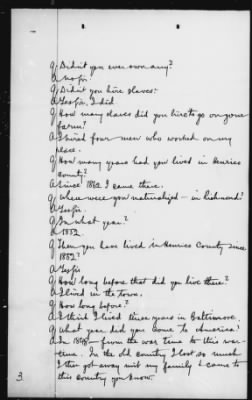 Q Didn't you ever own any?
A No sir
Q Didn't you hire slaves?
A Yes sir, I did
Q How many slaves did you hire to go on your
farm?
A I hired four men who worked on my
place.
Q How many years had you lived in Henrico
County?
A Since 1852 I came there.
Q Where were you naturalized — in Richmond?
A Yes sir.
Q In what year?
A 1852
Q Then you have lived in Henrico County since
1852?
A Yes sir
Q How long before that did you live there?
A I lived in the town.
Q How long before?
A I think I lived three years in Baltimore.
Q What year did you come to America?
A In 1848 — from the war time to this war-
time. In the old country I lost as much
I then got away mit my family & came to
this country you know.
3